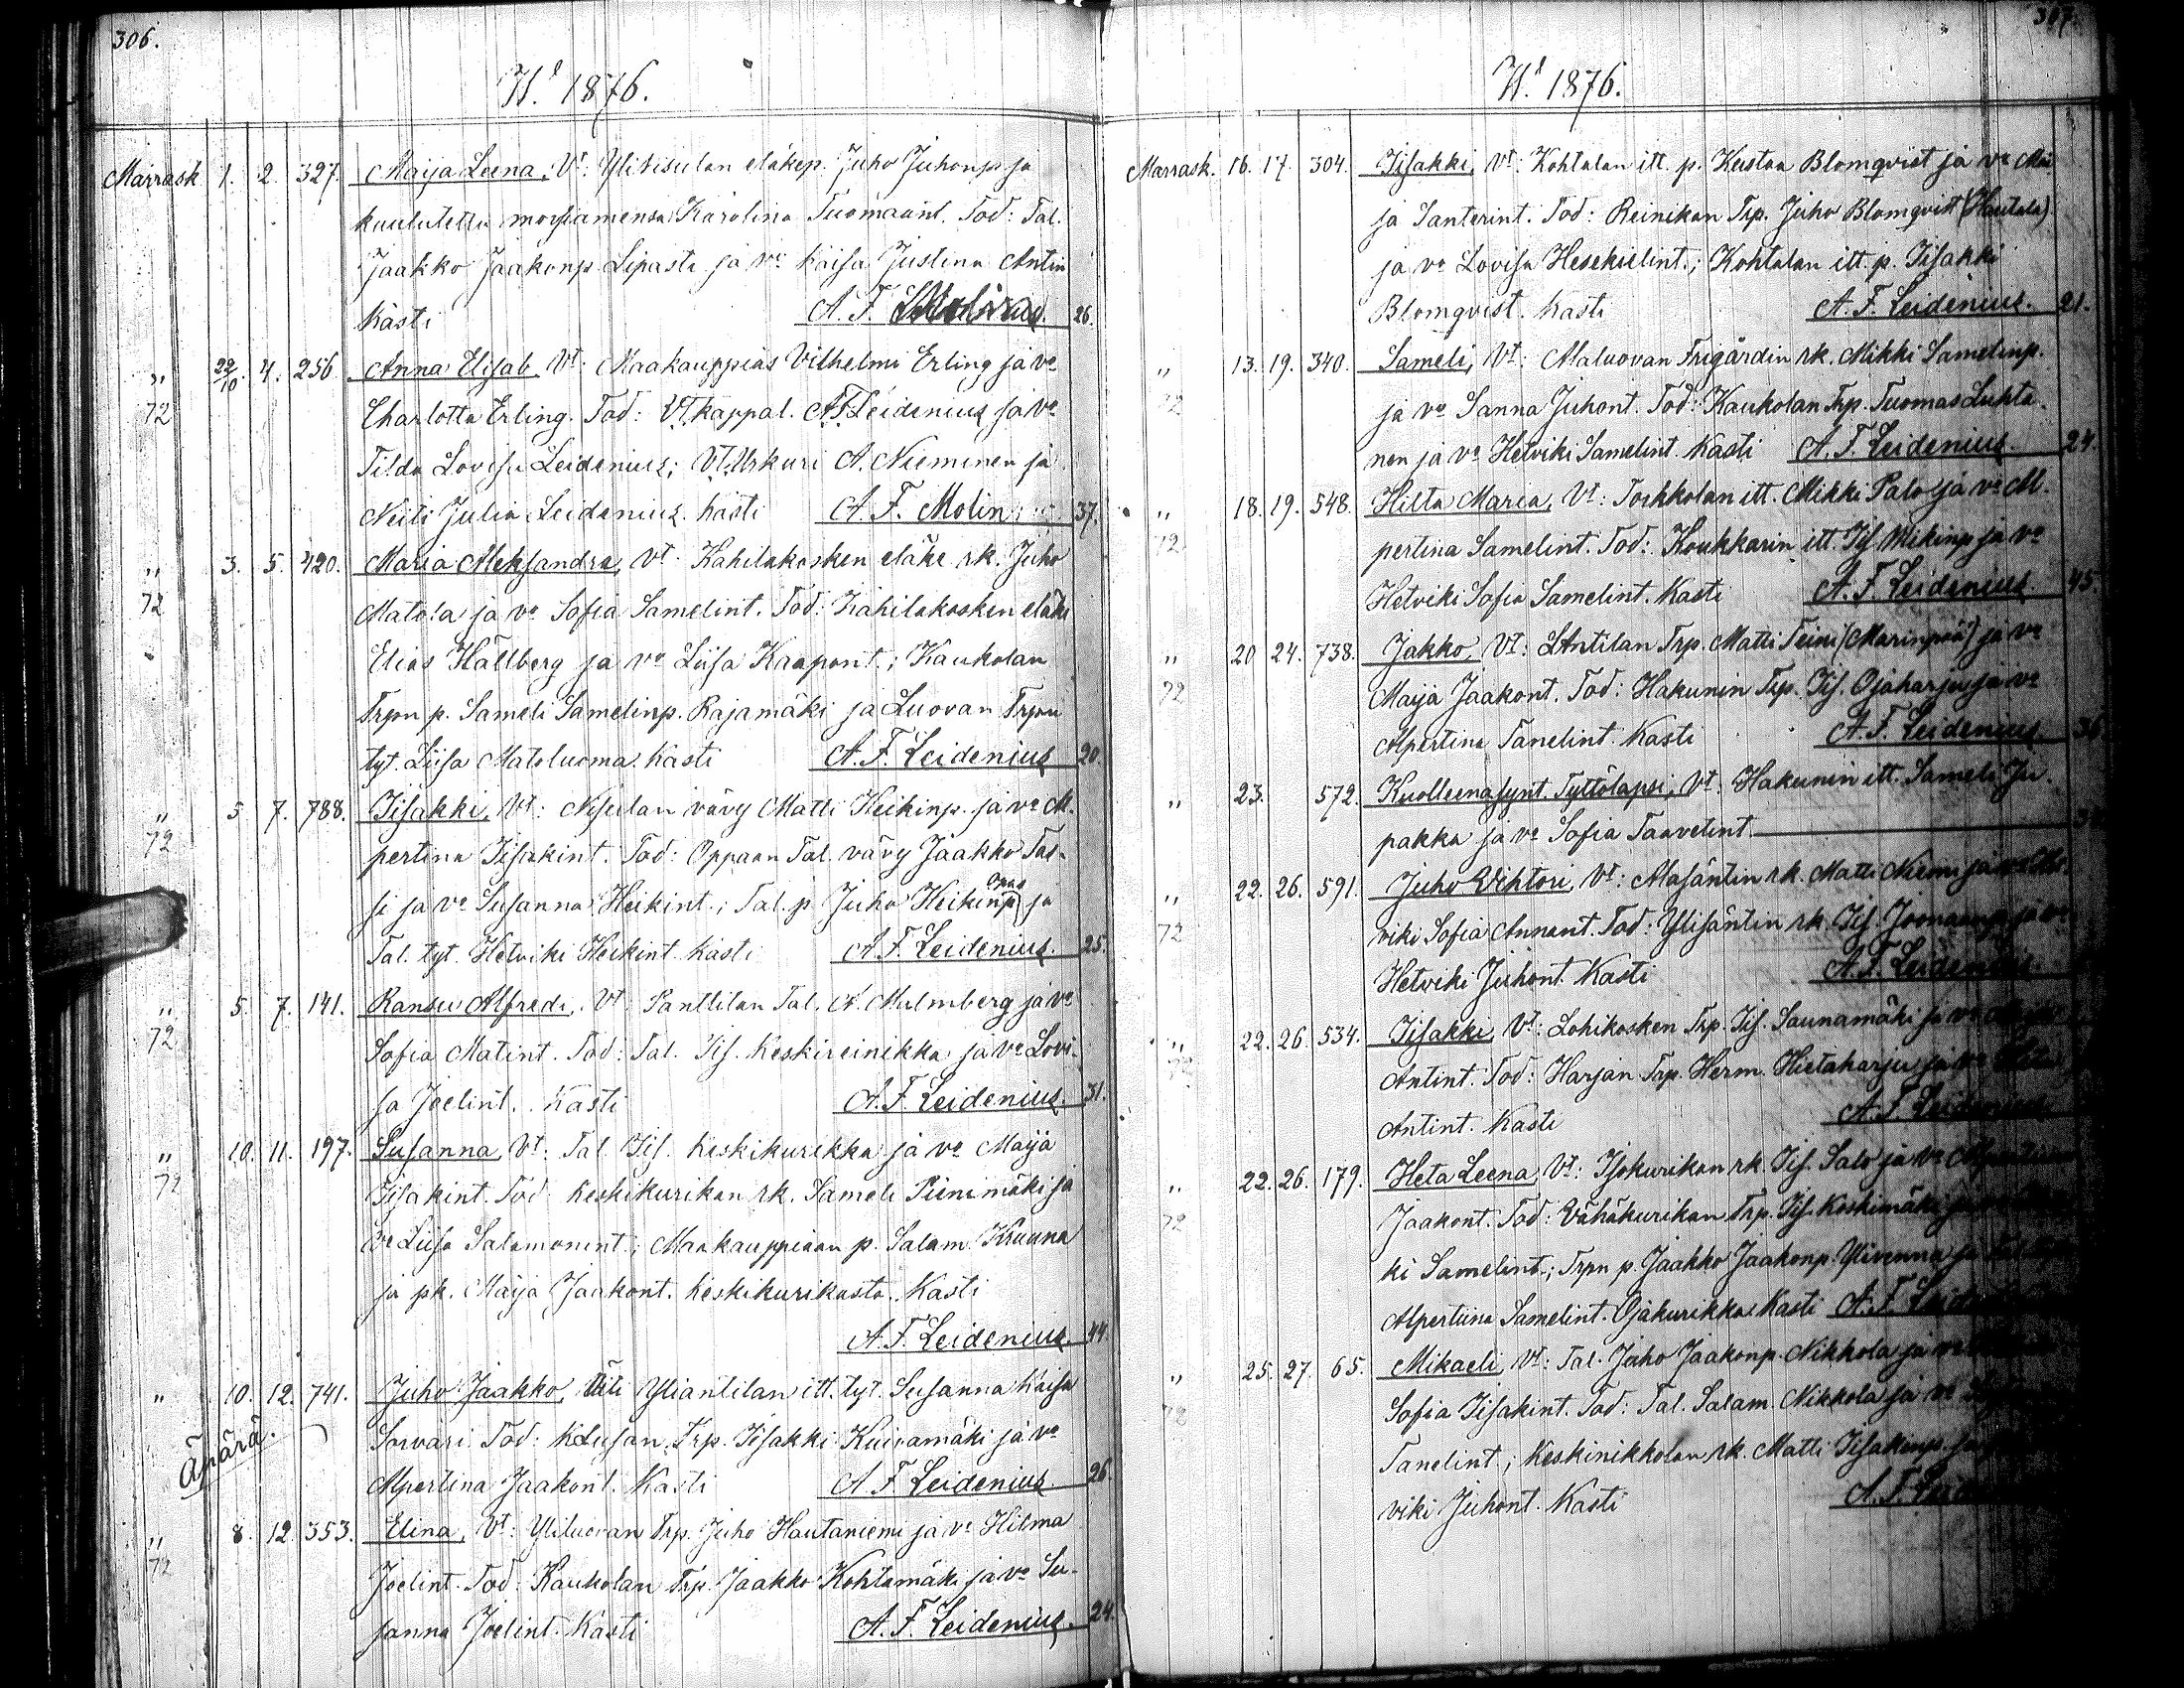 306.
W. 1876.
Marrask 1. 2. 327. Maija Leena, Vt: Ylirisulan eläkep. Juho Juhonp ja
kuulutettu morsiamensa Karolina Tuomaant. Tod: Tal.
Jaakko Jaakonp. Lipasti ja vo Kaisa Justina Antin
Kasti A. F. 26.
" 22/10. 4. 256 Anna Elisab, Vt: Maakauppias Vilhelmi Erling ja vo
72 Charlotta Erling. Tod: VT. kappal. A F Leidenius ja vo
Tilda Lovisa Leidenius; VT. Urkuri A. Nieminen ja
Neiti Julia Leidenius. Kasti A. F. Molin 37.
" 3. 5. 420. Maria Aleksandra, Vt: Kahilakosken eläke rk. Juho
72 Matola ja vo Sofia Samelint. Tod: Kahilakosken eläke
Elias Hällberg ja vo Liisa Kaapont.; Kaukolan
Trpn p. Sameli Samelinp. Rajamäki ja Luovan Trpn
tyt. Liisa Mataluoma. Kasti A. F. Leidenius 20
" 5 7. 788. Iisakki, Vt: Nisulan vävy Matti Heikinp. ja vo Al-
72 pertina Iisakint. Tod: Oppaan Tal. vävy Jaakko Tas-
si ja vo Susanna Heikint.; Tal. p. Juho Heikinp Opas ja
Tal. tyt. Hetviki Heikint. Kasti A. F. Leidenius. 25.
" 5. 7. 141. Ransu Alfredi, Vt: Panttilan Tal. A. Malmberg ja vo
72 Sofia Matint. Tod: Tal. Iis. Keskireinikka ja vo Lovi-
sa Joelint. Kasti A. F. Leidenius. 31.
" 10. 11. 197. Susanna, Vt: Tal. Iis. Keskikurikka ja vo Maija
72 Iisakint. Tod: Keskikurikan rk. Sameli Pienimäki ja
vo Liisa Salomonint.; Maakauppiaan p. Salam. Kruuna
ja pk. Maija Jaakont. Keskikurikasta. Kasti
A. F. Leidenius. 44.
" 10. 12. 741. Juho Jaakko, Äiti Yliantilan itt. tyt. Susanna Kaisa
Äpärä. Sorvari Tod: Kilusan Trp. Iisakki Kuivamäki ja vo
Alpertina Jaakont. Kasti A F Leidenius. 26.
" 8. 12. 353. Elina, Vt: Yliluovan Trp. Juho Hautaniemi ja vo Hilma
72 Joelint. Tod: Kaukolan Trp. Jaakko Kohtamäki ja vo Su-
sanna Joelint. Kasti A. F. Leidenius. 24.
307.
W. 1876.
Marrask. 16. 17. 304. Iisakki, Vt: Kohtalan itt. p. Kustaa Blomqvist ja vo Mai
ja Santerint. Tod: Reinikan Trp. Juho Blomqvist (Hautala)
ja vo Lovisa Hesekielint.; Kohtalan itt. p. Iisakki
Blomqvist. Kasti A. F. Leidenius. 21.
" 13. 19. 340. Sameli, Vt: Alaluovan Frigårdin rk. Mikki Samelinp.
72 ja vo Sanna Juhont. Tod: Kaukolan Trp. Tuomas Luhta-
nen ja vo Hetviki Samelint. Kasti A. F. Leidenius 24.
" 18. 19. 548. Hilta Maria, Vt: Torkkolan itt. Mikki Palo ja vo Al-
72 pertina Samelint. Tod: Koukkarin itt. Iis Mikinp ja vo
Hetviki Sofia Samelint. Kasti A. F. Leidenius 45.
" 20 24. 738. Jakko, Vt: LAntilan Trp. Matti Teini (Marinpää) ja vo
72 Maija Jaakont. Tod: Hakunin Trp. Iis. Ojaharju ja vo
Alpertina Tanelint. Kasti A. F. Leidenius 36
" 23. 572. Kuolleena synt. Tyttölapsi, Vt: Hakunin itt. Sameli Ju-
pakka ja vo Sofia Taavetint.
" 22. 26. 591. Juho Vihtori, Vt: Alasäntin rk. Matti Niemi ja vo Het-
72 viki Sofia Annant. Tod: Ylisäntin rk. Iis. Joonaanp ja vo
Hetviki Juhont. Kasti A. F. Leidenius
" 22. 26. 534. Iisakki, Vt: Lohikosken Trp. Iis. Saunamäki ja vo
72 Antint. Tod: Harjan Trp. Herm. Hietaharju ja vo
Antint. Kasti A. F. Leidenius
" 22. 26. 179. Heta Leena, Vt: Isokurikan rk. Iis. Salo ja vo Alpertina
72 Jaakont. Tod: Vähäkurikan Trp. Iis. Koskimäki ja
ki Samelint.; Trpn p. Jaakko Jaakonp. Ylivenna ja
Alpertiina Samelint. Ojakurikka. Kasti A. F. Leid
" 25. 27. 65. Mikaeli, Vt: Tal. Juho Jaakonp. Nikkola ja vo
72 Sofia Iisakint. Tod: Tal. Salam. Nikkola ja vo
Tanelint.; Keskinikkolan rk. Matti Iisakinp. ja
viki Juhont. Kasti A. F. Leid